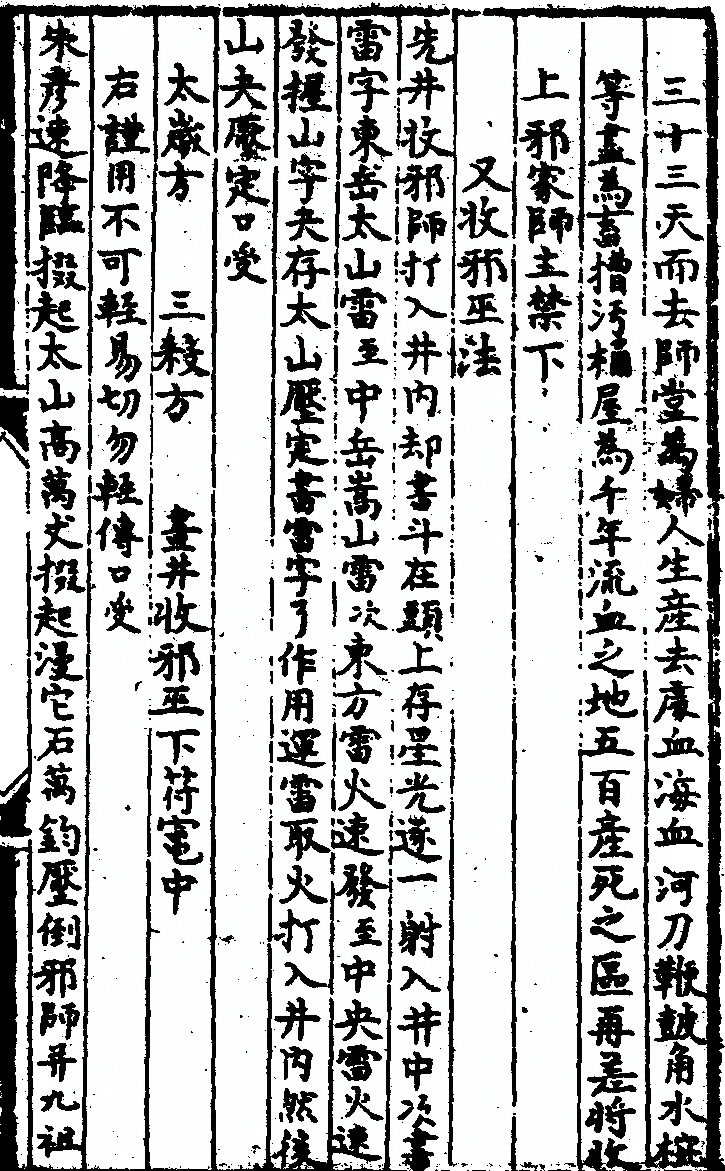 三十三天而去師堂為婦人生産去處血海血河刀鞭皷角水椀
等盡為畜措汚糆屋為千年流血之地五百産死之區再差將收
上邪家師主禁下
又收邪巫法
先井收邪師打入井内却書斗在頭上存星光遂一射入井中次書
雷字東岳太山雷至中岳嵩山雷次東方雷火速發至中央雷火速
發握山字夬存太山壓定書雷字了作用運雷取火打入井内然後
山夬壓定口受
太歲方 三殺方 畫井收邪巫下符竈中
右謹用不可輕易切勿輕傳口受
朱彦速降臨掇起太山高萬丈掇起漫它石萬鈞壓倒邪師并九祖